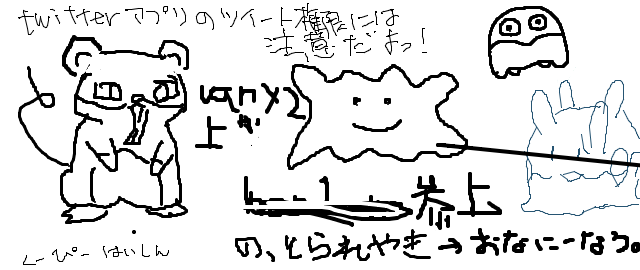 twitterアプリのツイート権限には
注意だよっ!
vanx2
上が
参上
の、とられやき→おなにーなう。
くーぴーはいしん